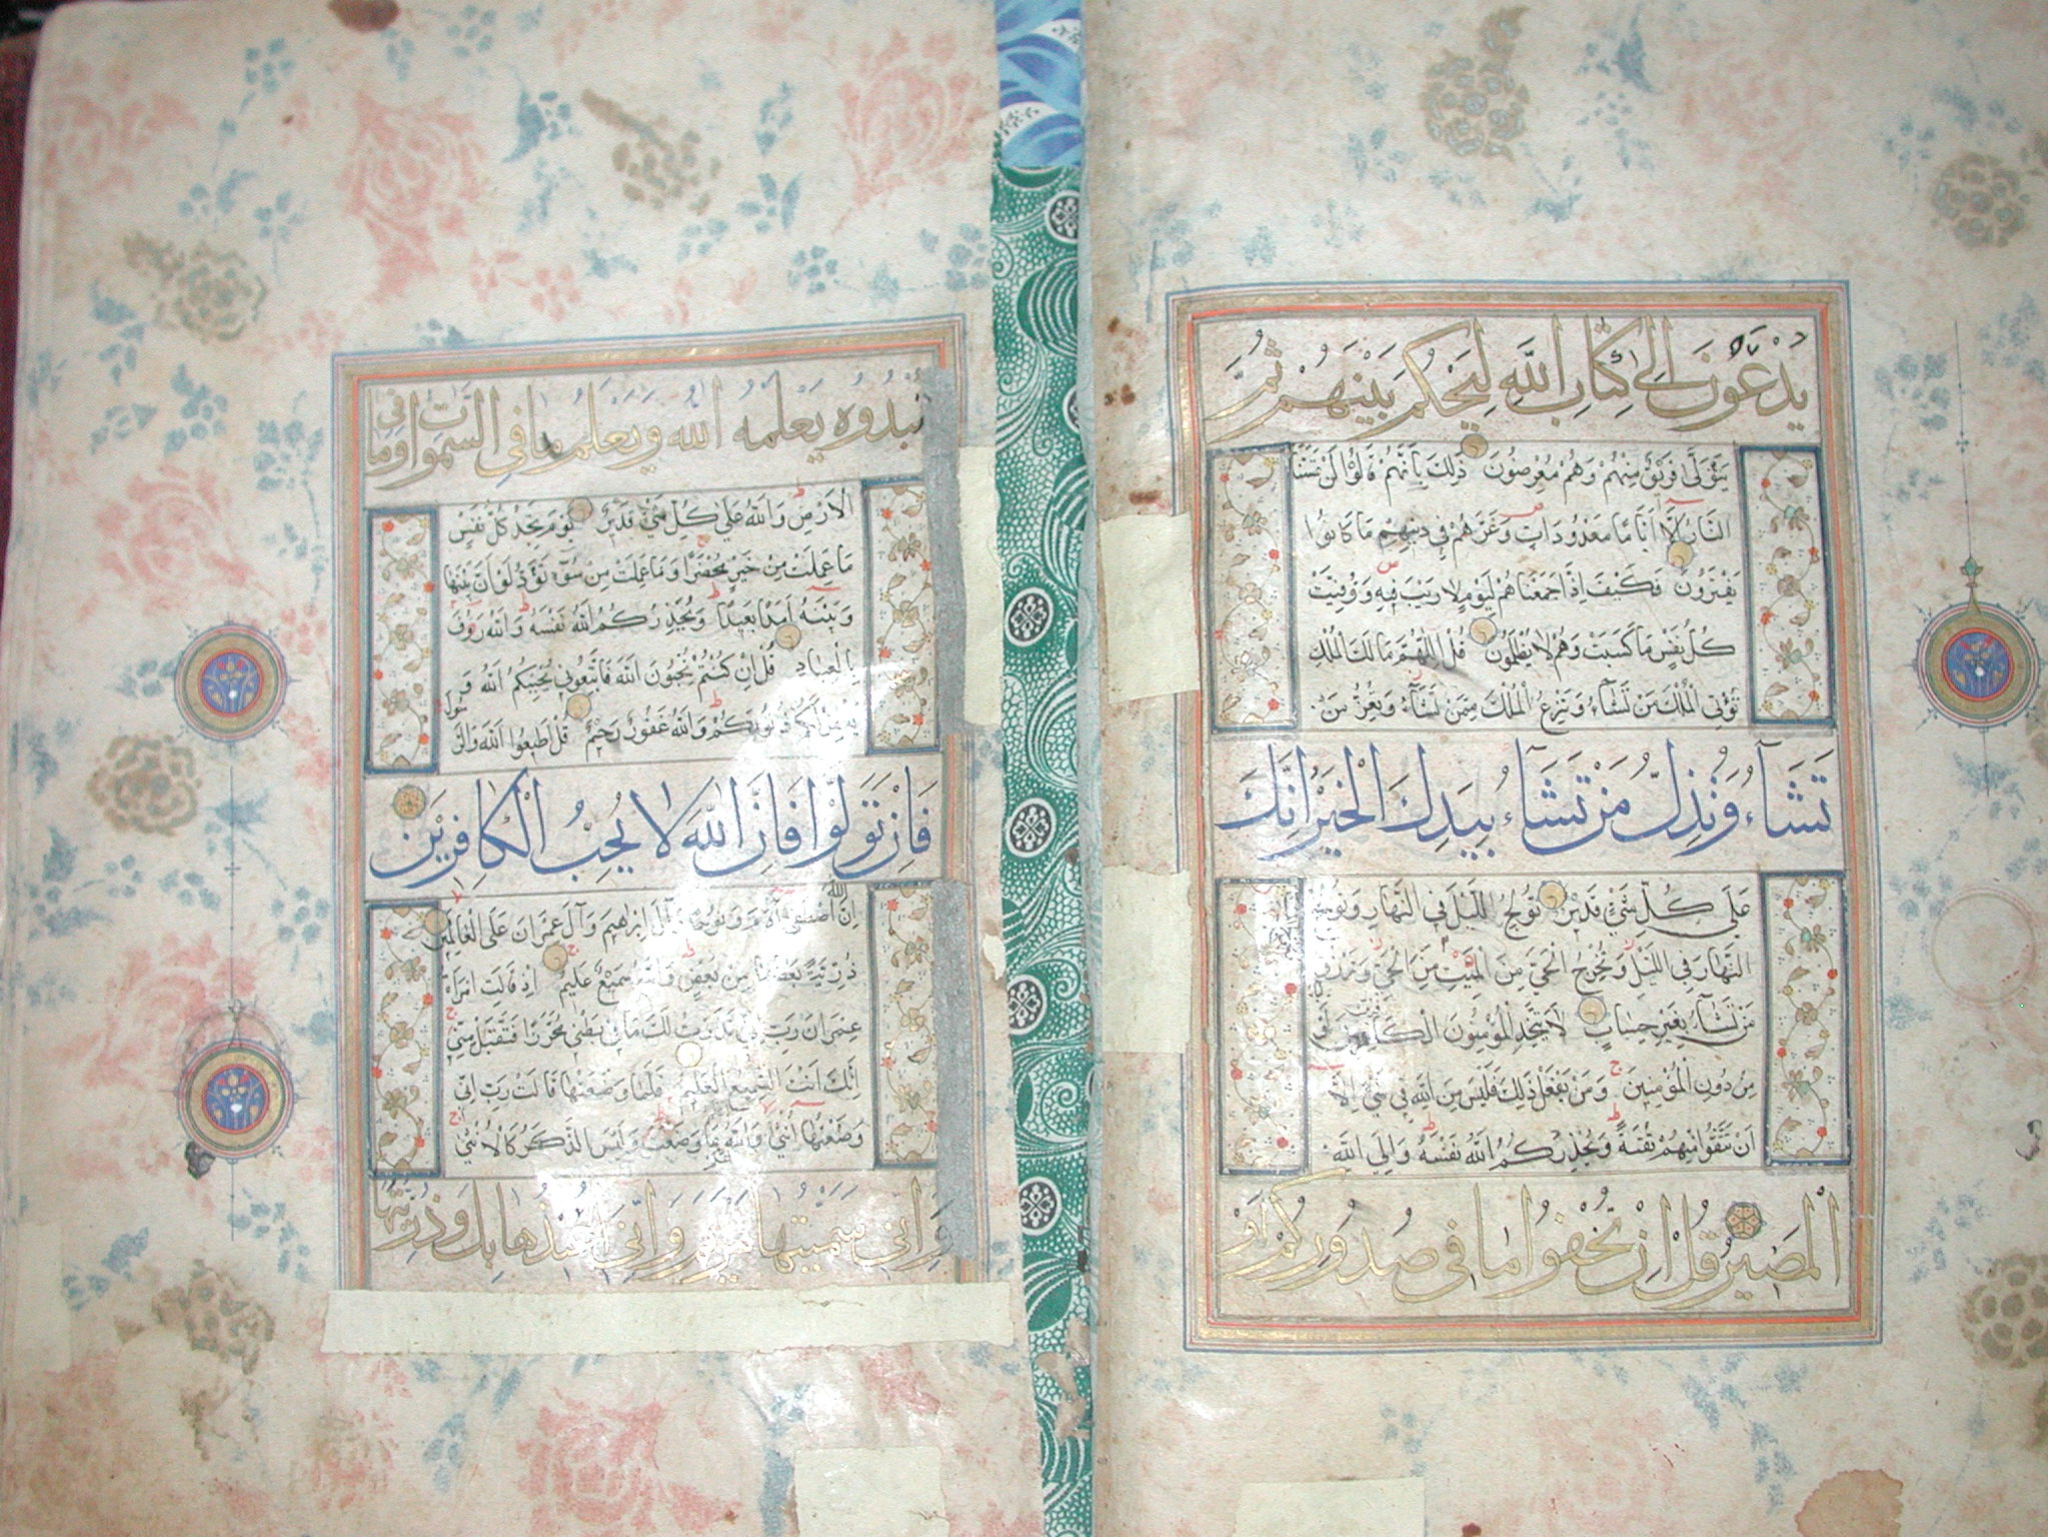 يُدْعَوْنَ إِلَىٰ كِتَابِ اللَّهِ لِيَحْكُمَ بَيْنَهُمْ ثُمَّ
يَتَوَلَّى فَرِيقٌ مِنْهُمْ وَهُمْ مُعْرِضُونَ ذَلِكَ بِأَنَّهُمْ قَالُوا لَنْ تَمَسَّنَا
النَّارُ إِلَّا أَيَّامًا مَعْدُودَاتٍ وَغَرَّهُمْ فِي دِينِهِمْ مَا كَانُوا
يَفْتَرُونَ فَكَيْفَ إِذَا جَمَعْنَاهُمْ لِيَوْمٍ لَا رَيْبَ فِيهِ وَوُفِّيَتْ
كُلُّ نَفْسٍ مَا كَسَبَتْ وَهُمْ لَا يُظْلَمُونَ قُلِ اللَّهُمَّ مَالِكَ الْمُلْكِ
تُؤْتِي الْمُلْكَ مَنْ تَشَاءُ وَتَنْزِعُ الْمُلْكَ مِمَّنْ تَشَاءُ وَتُعِزُّ مَنْ
تَشَاءُ وَتُذِلُّ مَنْ تَشَاءُ بِيَدِكَ الْخَيْرُ إِنَّكَ
عَلَى كُلِّ شَيْءٍ قَدِيرٌ تُولِجُ اللَّيْلَ فِي النَّهَارِ وَتُولِجُ
النَّهَارَ فِي اللَّيْلِ وَتُخْرِجُ الْحَيَّ مِنَ الْمَيِّتِ مِنَ الْحَيِّ وَتَرْزُقُ
مَنْ تَشَاءُ بِغَيْرِ حِسَابٍ لَا يَتَّخِذِ الْمُؤْمِنُونَ الْكَافِرِينَ
مِنْ دُونِ الْمُؤْمِنِينَ وَمَنْ يَفْعَلْ ذَلِكَ فَلَيْسَ مِنَ اللَّهِ فِي شَيْءٍ إِلَّا
أَنْ تَتَّقُوا مِنْهُمْ تُقَاةً وَيُحَذِّرُكُمُ اللَّهُ نَفْسَهُ وَإِلَى اللَّهِ
الْمَصِيرُ قُلْ إِنْ تُخْفُوا مَا فِي صُدُورِكُمْ أَوْ
تُبْدُوهُ يَعْلَمْهُ اللَّهُ وَيَعْلَمُ مَا فِي السَّمَوَاتِ وَمَا فِي
الْأَرْضِ وَاللَّهُ عَلَى كُلِّ شَيْءٍ قَدِيرٌ يَوْمَ تَجِدُ كُلُّ نَفْسٍ
مَا عَمِلَتْ مِنْ خَيْرٍ مُحْضَرًا وَمَا عَمِلَتْ مِنْ سُوءٍ تَوَدُّ لَوْ أَنَّ بَيْنَهَا
وَبَيْنَهُ أَمَدًا بَعِيدًا وَيُحَذِّرُكُمُ اللَّهُ نَفْسَهُ وَاللَّهُ رَؤُفٌ
بِالْعِبَادِ قُلْ إِنْ كُنْتُمْ تُحِبُّونَ اللَّهَ فَاتَّبِعُونِي يُحْبِبْكُمُ اللَّهُ وَ
ذُنُوبَكُمْ وَاللَّهُ غَفُورٌ رَحِيمٌ قُلْ أَطِيعُوا اللَّهَ وَالرَّسُولَ
فَإِنْ تَوَلَّوْا فَإِنَّ اللَّهَ لَا يُحِبُّ الْكَافِرِينَ
إِنَّ اللَّهَ اصْطَفَى آدَمَ وَنُوحًا وَآلَ إِبْرَاهِيمَ وَآلَ عِمْرَانَ عَلَى الْعَالَمِينَ
ذُرِّيَّةً بَعْضُهَا مِنْ بَعْضٍ وَاللَّهُ سَمِيعٌ عَلِيمٌ إِذْ قَالَتِ امْرَأَةُ
عِمْرَانَ رَبِّ إِنِّي نَذَرْتُ لَكَ مَا فِي بَطْنِي مُحَرَّرًا فَتَقَبَّلْ مِنِّي
إِنَّكَ أَنْتَ السَّمِيعُ الْعَلِيمُ فَلَمَّا وَضَعَتْهَا قَالَتْ رَبِّ إِنِّي
وَضَعْتُهَا أُنْثَى وَاللَّهُ أَعْلَمُ بِمَا وَضَعَتْ وَلَيْسَ الذَّكَرُ كَالْأُنْثَى
وَإِنِّي سَمَّيْتُهَا مَرْيَمَ وَإِنِّي أُعِيذُهَا بِكَ وَذُرِّيَّتَهَا